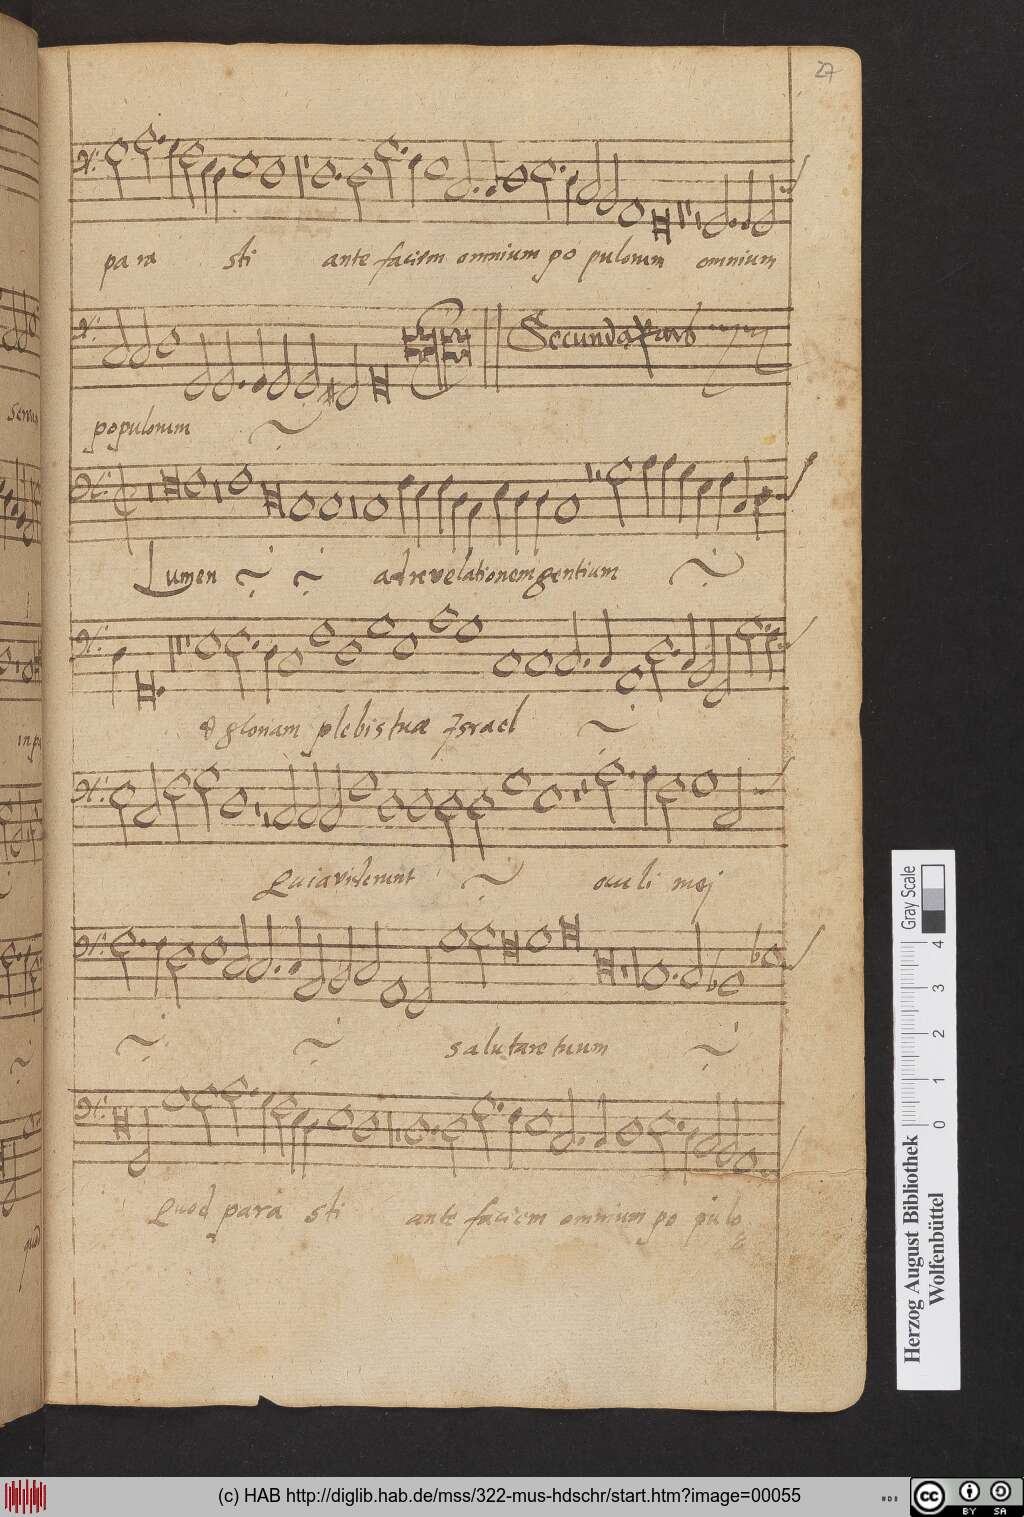 27
para sti ante faciem omnium po pulorum omnium
Secunda pars
populorum
Lumen ad revelationem gentium
& gloriam plebis tuæ Israel
Quia viderunt oculi mei
salutare tuum
Quod para sti ante faciem omnium po pulo
Gray Scale
0 1 2 3 4
Herzog August Bibliothek
Wolfenbüttel
(c) HAB http://diglib.hab.de/mss/322-mus-hdschr/start.htm?image=00055
cc BY SA